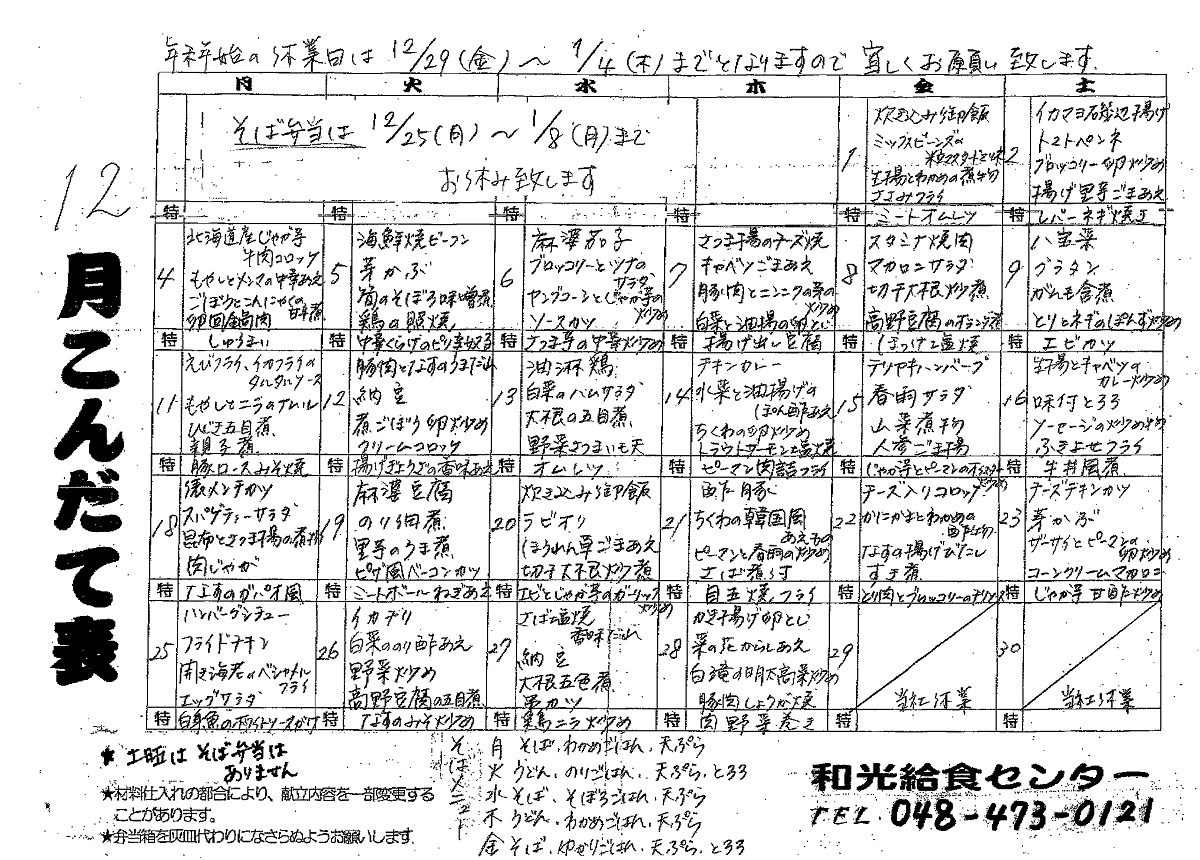 年末年始の休業日は12/29(金)～1/4(木)までとなりますので宜しくお願い致します。
月 火 水 木 金 土
12月こんだて表
そば弁当は12/25(月)～1/8(月)まで
お休み致します
1
炊き込み御飯
ミックスビーンズの
粒マスタード
生揚とわかめの煮物
ささみフライ
特 ミートオムレツ
2
イカマヨ磯辺揚げ
トマトペンネ
ブロッコリー卵炒め
揚げ里芋ごまあえ
特 レバーネギ焼き
4
北海道産じゃが芋
牛肉コロッケ
もやしとメンマの中華あえ
ごぼうとこんにゃくの
特 しゅうまい
5
海鮮焼ビーフン
芽かぶ
筍のそぼろ味噌煮
鶏の照焼
特 中華くらげのピリ辛
6
麻婆茄子
ブロッコリーとツナの
サラダ
ヤングコーンとじゃが芋の
炒め
ソースカツ
特 さつま芋の中華炒め
7
さつま揚のチーズ焼
キャベツごまあえ
豚肉とニンニクの芽の
炒め
白菜と油揚の卵とじ
特 揚げ出し豆腐
8
スタミナ焼肉
マカロニサラダ
切干大根炒煮
高野豆腐のオランダ煮
特 ほっけ塩焼
9
八宝菜
グラタン
がんも含煮
とりとネギのぽんず炒め
特 エビカツ
11
えびフライ、イカフライの
タルタルソース
もやしとニラのナムル
ひじき五目煮
親子煮
特 豚ロースみそ焼
12
豚肉となすのうまだれ
納豆
煮ごぼう卵炒め
クリームコロッケ
特 揚げぎょうざの香味あえ
13
油淋鶏
白菜のハムサラダ
大根の五目煮
野菜さつまいも天
特 オムレツ
14
チキンカレー
水菜と油揚げの
ぽん酢あえ
ちくわの卵炒め
トラウトサーモン塩焼
特 ピーマン肉詰フライ
15
テリヤキハンバーグ
春雨サラダ
山菜煮物
人参ごま揚
特 じゃが芋とピーマンのオイスター炒め
16
生揚とキャベツの
カレー炒め
味付とろろ
ソーセージの炒め物
ふきよせフライ
特 牛丼風煮
18
メンチカツ
スパゲティーサラダ
昆布とさつま揚の煮物
肉じゃが
特 なすのガパオ風
19
麻婆豆腐
のり佃煮
里芋のうま煮
ピザ風ベーコンカツ
特 ミートボールねぎあえ
20
炊き込み御飯
ラビオリ
ほうれん草ごまあえ
切干大根炒煮
特 エビとじゃが芋のガーリック炒め
21
酢豚
ちくわの韓国風
あえもの
ピーマンと春雨の炒め
さば煮付
特 目玉焼、フライ
22
チーズ入りコロッケ
かにかまとわかめの
酢の物
なすの揚げびたし
すき煮
特 とり肉とブロッコリーの
23
チーズチキンカツ
芽かぶ
ザーサイとピーマンの
卵炒め
コーンクリームマカロニ
特 じゃが芋甘酢炒め
25
ハンバーグシチュー
フライドチキン
開き海老のベシャメル
フライ
エッグサラダ
特 白身魚のホワイトソースがけ
26
イカチリ
白菜ののり酢あえ
野菜炒め
高野豆腐の五目煮
特 なすのみそ炒め
27
さば塩焼
香味だれ
納豆
大根五色煮
串カツ
特 ニラ炒め
28
かき揚げ卵とじ
菜の花からしあえ
白滝の明太高菜炒め
豚肉しょうが焼
特 肉野菜巻き
29
当社休業
特
30
当社休業
特
★土曜はそば弁当は
ありません
★材料仕入れの都合により、献立内容を一部変更する
ことがあります。
★弁当箱を灰皿代わりになさらぬようお願いします。
そばメニュー
月 そば、わかめごはん、天ぷら
火 うどん、のりごはん、天ぷら、とろろ
水 そば、そぼろごはん、天ぷら
木 うどん、わかめごはん、天ぷら
金 そば、ゆかりごはん、天ぷら、とろろ
和光給食センター
TEL. 048-473-0121